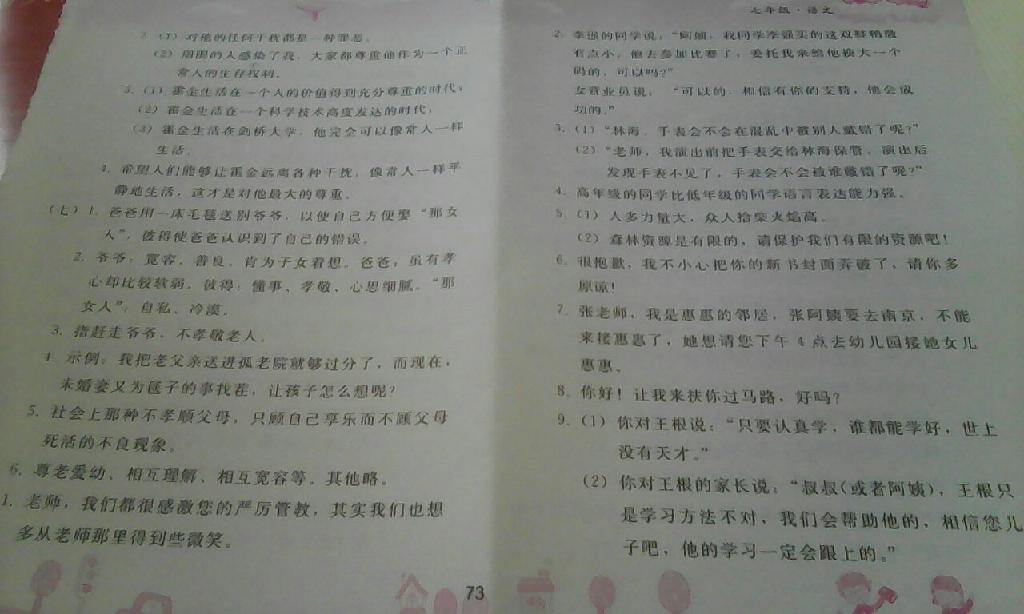 2. (1) 对他的任何干扰都是一种罪恶。
(2) 周围的人感染了我，大家都尊重他作为一个正
常人的生存权利。
3. (1) 霍金生活在一个人的价值得到充分尊重的时代；
(2) 霍金生活在一个科学技术高度发达的时代；
(3) 霍金生活在剑桥大学，他完全可以像常人一样
生活。
4. 希望人们能够让霍金远离各种干扰，像常人一样平
静地生活，这才是对他最大的尊重。
(七) 1. 爸爸用一床毛毯送别爷爷，以便自己方便娶“那女
人”，彼得使爸爸认识到了自己的错误。
2. 爷爷：宽容、善良，肯为子女着想。爸爸：虽有孝
心却比较软弱。彼得：懂事、孝敬、心思细腻。“那
女人”：自私、冷漠。
3. 指赶走爷爷，不孝敬老人。
4. 示例：我把老父亲送进孤老院就够过分了，而现在，
未婚妻又为毯子的事找茬，让孩子怎么想呢？
5. 社会上那种不孝顺父母，只顾自己享乐而不顾父母
死活的不良现象。
6. 尊老爱幼、相互理解、相互宽容等。其他略。
1. 老师，我们都很感激您的严厉管教，其实我们也想
多从老师那里得到些微笑。
73
七年级·语文
2. 李强的同学说：“阿姨，我同学李强买的这双鞋稍微
有点小，他去参加比赛了，委托我来给他换大一个
码的，可以吗？”
女营业员说：“可以的，相信有你的支持，他会成
功的。”
3. (1) “林海，手表会不会在混乱中被别人戴错了呢？”
(2) “老师，我演出前把手表交给林海保管，演出后
发现手表不见了，手表会不会被谁戴错了呢？”
4. 高年级的同学比低年级的同学语言表达能力强。
5. (1) 人多力量大，众人拾柴火焰高。
(2) 森林资源是有限的，请保护我们有限的资源吧！
6. 很抱歉，我不小心把你的新书封面弄破了，请你多
原谅！
7. 张老师，我是惠惠的邻居，张阿姨要去南京，不能
来接惠惠了，她想请您下午 4 点去幼儿园接她女儿
惠惠。
8. 你好！让我来扶你过马路，好吗？
9. (1) 你对王根说：“只要认真学，谁都能学好，世上
没有天才。”
(2) 你对王根的家长说：“叔叔（或者阿姨），王根只
是学习方法不对，我们会帮助他的，相信您儿
子吧，他的学习一定会跟上的。”